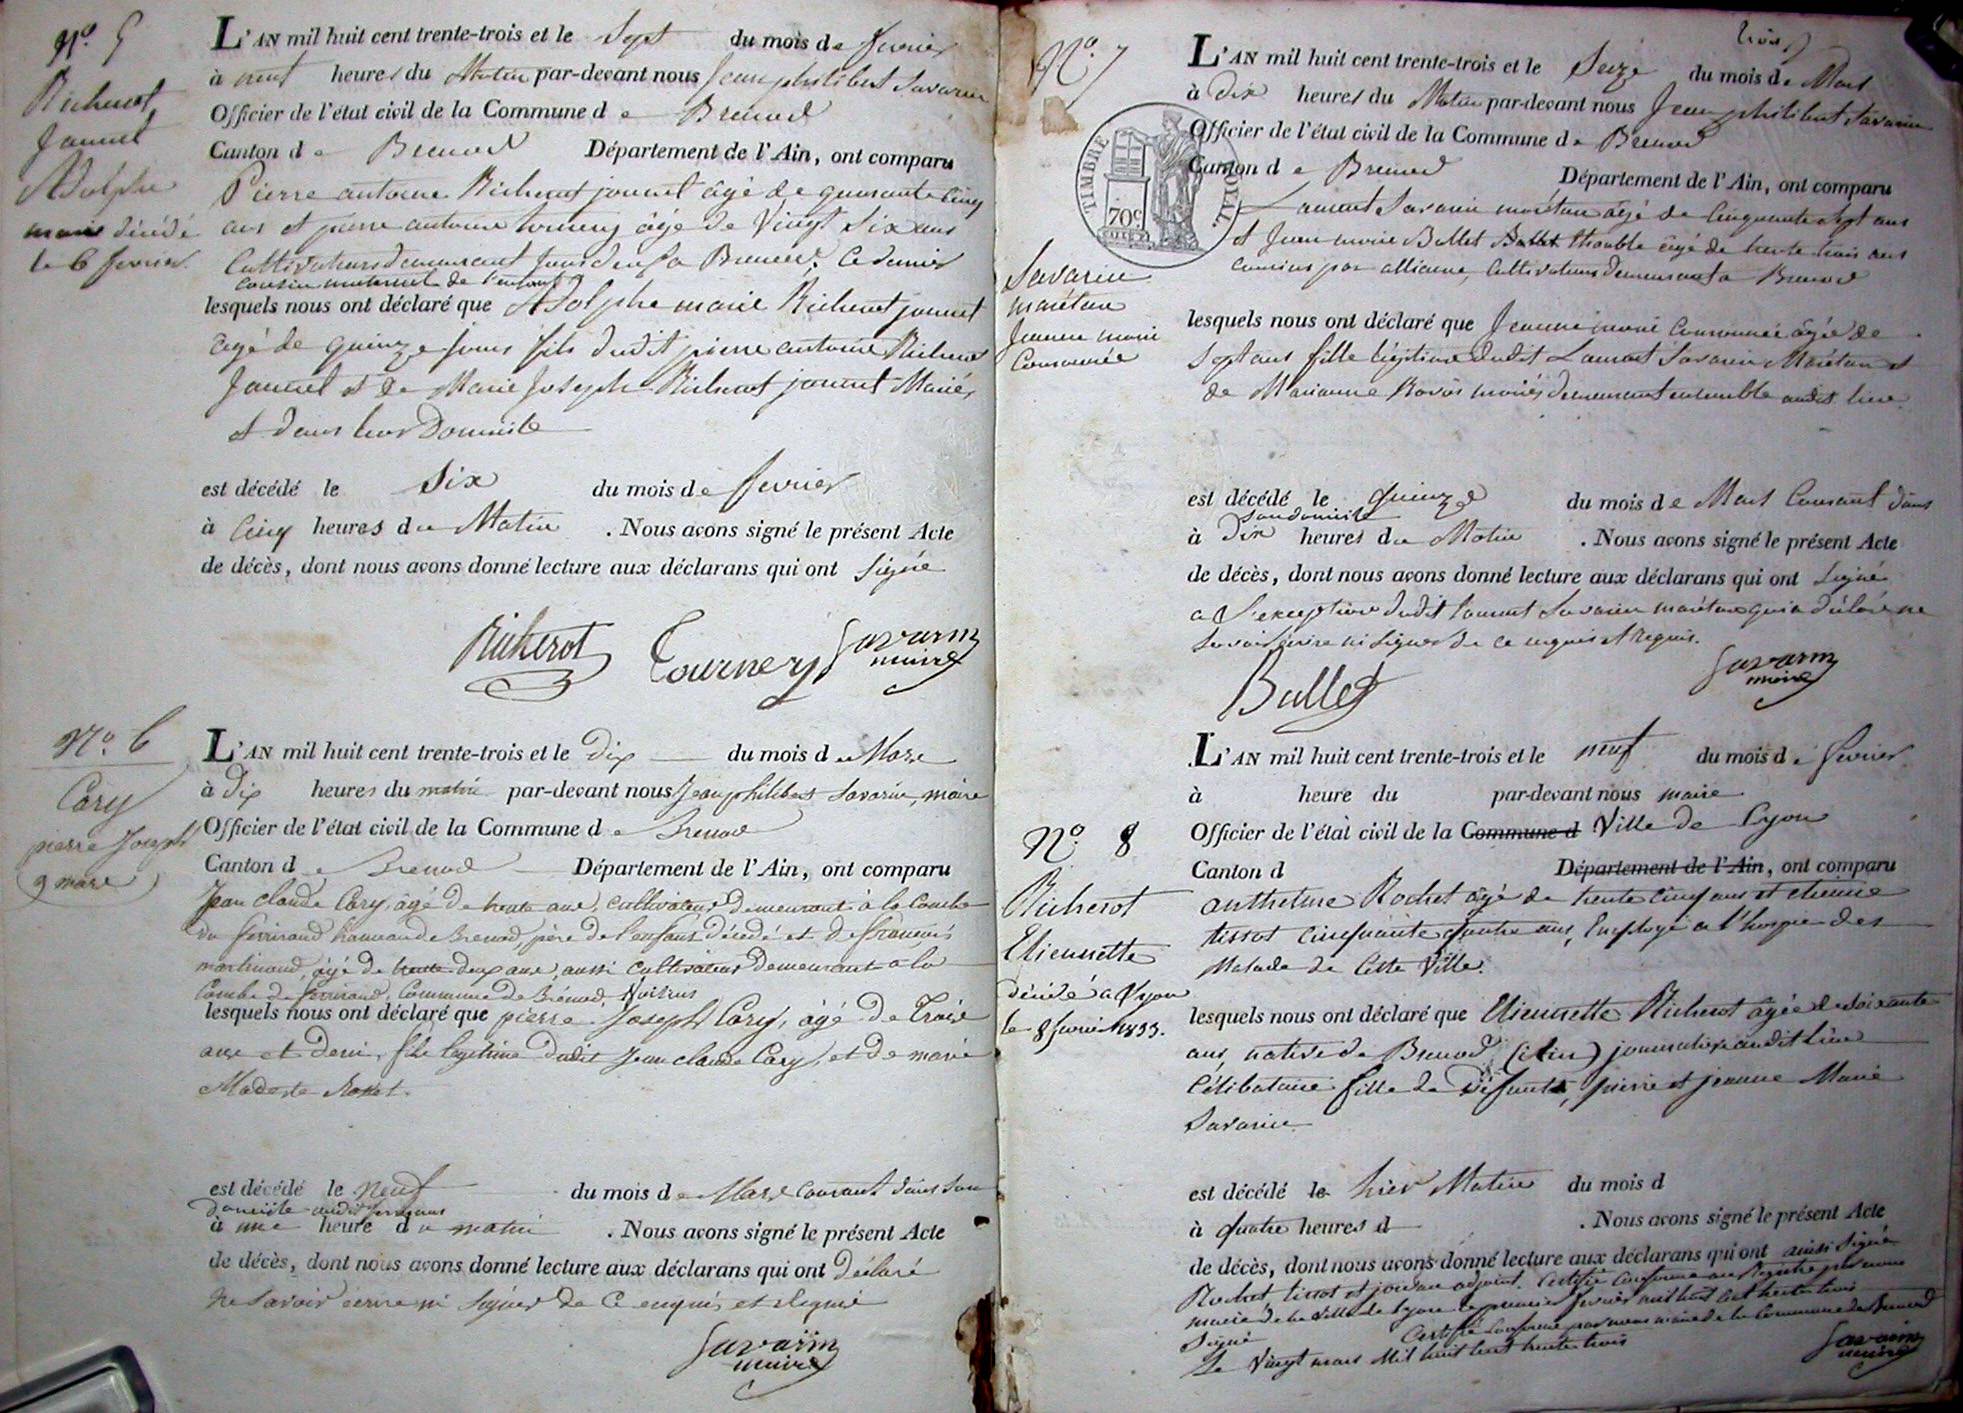 N.º 5
Richerot
Jannet
Adolphe
marie décédé
le 6 fevrier.
L'AN mil huit cent trente-trois et le Sept du mois de fevrier
à neuf heures du Matin par-devant nous Jean philibert Savarin
Officier de l'état civil de la Commune de Brenod
Canton de Brenod Département de l'Ain, ont comparu
Pierre antoine Richerot jannet âgé de quarante cinq
ans et pierre antoine tournery âgé de Vingt six ans
Cultivateurs demeurant tous deux à Brenod. Ce dernier
cousin maternel de l'enfant
lesquels nous ont déclaré que Adolphe marie Richerot jannet
âgé de quinze jours fils dudit pierre antoine Richerot
Jannet et de Marie Joseph Richerot jannet Mariés
et dans leur Domicile
est décédé le Six du mois de fevrier
à Cinq heures du Matin. Nous avons signé le présent Acte
de décès, dont nous avons donné lecture aux déclarans qui ont signé
Richerot Tournery Savarin
maire
N.º 6
Cary
pierre Joseph
9 mars
L'AN mil huit cent trente-trois et le Dix du mois de Mars
à Dix heures du matin par-devant nous Jean philibert Savarin, maire
Officier de l'état civil de la Commune de Brenod
Canton de Brenod Département de l'Ain, ont comparu
Jean Claude Cary, âgé de trente ans, cultivateur demeurant à la Combe
du hameau de Brenod, père de l'enfant décédé et de françois
martinand, âgé de trente deux ans, aussi cultivateur demeurant à la
Combe de Commune de Brénod, Voisins
lesquels nous ont déclaré que pierre Joseph Cary, âgé de Trois
ans et demi, fils légitime dudit Jean Claude Cary, et de marie
Modeste
est décédé le Neuf du mois de Mars courant dans son
domicile audit
à une heure du matin. Nous avons signé le présent Acte
de décès, dont nous avons donné lecture aux déclarans qui ont déclaré
ne savoir écrire ni signer de ce enquis et requis
Savarin
maire
trois
N.º 7
TIMBRE ROYAL
70c
Savarin
marétan
Jeanne marie
Consonnée
L'AN mil huit cent trente-trois et le Seize du mois de Mars
à Dix heures du Matin par-devant nous Jean philibert Savarin
Officier de l'état civil de la Commune de Brenod
Canton de Brenod Département de l'Ain, ont comparu
Laurent Savarin marétan âgé de Cinquante Sept ans
et Jean marie Ballet âgé de trente trois ans
cousins par alliance, Cultivateurs demeurant à Brenod
lesquels nous ont déclaré que Jeanne marie Consonnée âgée de
Sept ans fille légitime dudit Laurent Savarin Marétan et
de Marianne mariés demeurant ensemble audit lieu
est décédé le quinze du mois de Mars Courant dans
son domicile
à Dix heures du Matin. Nous avons signé le présent Acte
de décès, dont nous avons donné lecture aux déclarans qui ont signé
a l'exception dudit Laurent Savarin marétan qui a déclaré ne
Savoir écrire ni signer de ce enquis et requis.
Ballet Savarin
maire
N.º 8
Richerot
Etiennette
décédé à Lyon
le 8 fevrier 1833.
L'AN mil huit cent trente-trois et le neuf du mois de fevrier
à heure du par-devant nous maire
Officier de l'état civil de la Commune d Ville de Lyon
Canton d Département de l'Ain, ont comparu
anthelme Rochet âgé de trente Cinq ans et etienne
tissot cinquante quatre ans, Employé a l'hospice des
Malade de Cette Ville.
lesquels nous ont déclaré que Etiennette Richerot âgée de soixante
ans, native de Brenod (Ain) journalière audit lieu
Célibataire fille de Défunts, pierre et jeanne Marie
Savarin
est décédé le hier Matin du mois d
à quatre heures d. Nous avons signé le présent Acte
de décès, dont nous avons donné lecture aux déclarans qui ont ainsi signé
Rochet tissot et adjoint. Certifié Conforme au Registre par nous
maire de la Ville de Lyon le premier fevrier mil huit cent trente trois
Signé Certifié Conforme par nous maire de la Commune de Brenod
Le Vingt mars Mil huit cent trente trois
Savarin
maire